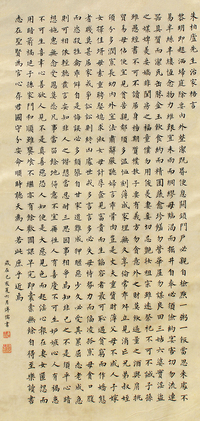 朱柏廬先生治家格言
黎明即起灑掃庭除要內外整潔既昏便息關鎖門戶必親自檢點一粥一飯當思來處不
易半絲半縷恆念物力維艱宜未雨而綢繆毋臨渴而掘井自奉必須儉約宴客切勿流連
器具質而潔瓦缶勝金玉飲食約而精園蔬愈珍饈勿營華屋勿謀良田三姑六婆實淫盜
之媒婢美妾嬌非閨房之福童僕勿用俊美妻妾切忌艷妝祖宗雖遠祭祀不可不誠子孫
雖愚經書不可不讀居身務期質樸教子要有義方勿貪意外之財勿飲過量之酒與肩挑
貿易毋佔便宜見貧苦親鄰須加溫恤刻薄成家理無久享倫常乖舛立見消亡兄弟叔姪
須分多潤寡長幼內外宜法肅辭嚴聽婦言乖骨肉豈是丈夫重貲財薄父母不成人子嫁
女擇佳婿毋索重聘娶媳求淑女勿計厚奩見富貴而生諂容者最可恥遇貧窮而作驕態
者賤莫甚居家戒爭訟訟則終凶處世戒多言言多必失勿恃勢力而凌逼孤寡毋貪口腹
而恣殺牲禽乖僻自是悔誤必多頹惰自甘家道難成狎暱惡少久必受其累屈志老成急
則可相依輕聽發言安知非人之譖愬當忍耐三思因事相爭焉知非我之不是須平心暗想
施惠無念受恩莫忘凡事當留餘地得意不宜再往人有喜慶不可生妒嫉心人有禍患
不可生喜幸心善欲人見不是真善惡恐人知便是大惡見色而起淫心報在妻女匿怨而
用暗箭禍延子孫家門和順雖饔飧不繼亦有餘歡國課早完即囊橐無餘自得至樂讀書
志在聖賢為官心存君國守分安命順時聽天為人若此庶乎近焉
歲在己亥 溥儒書